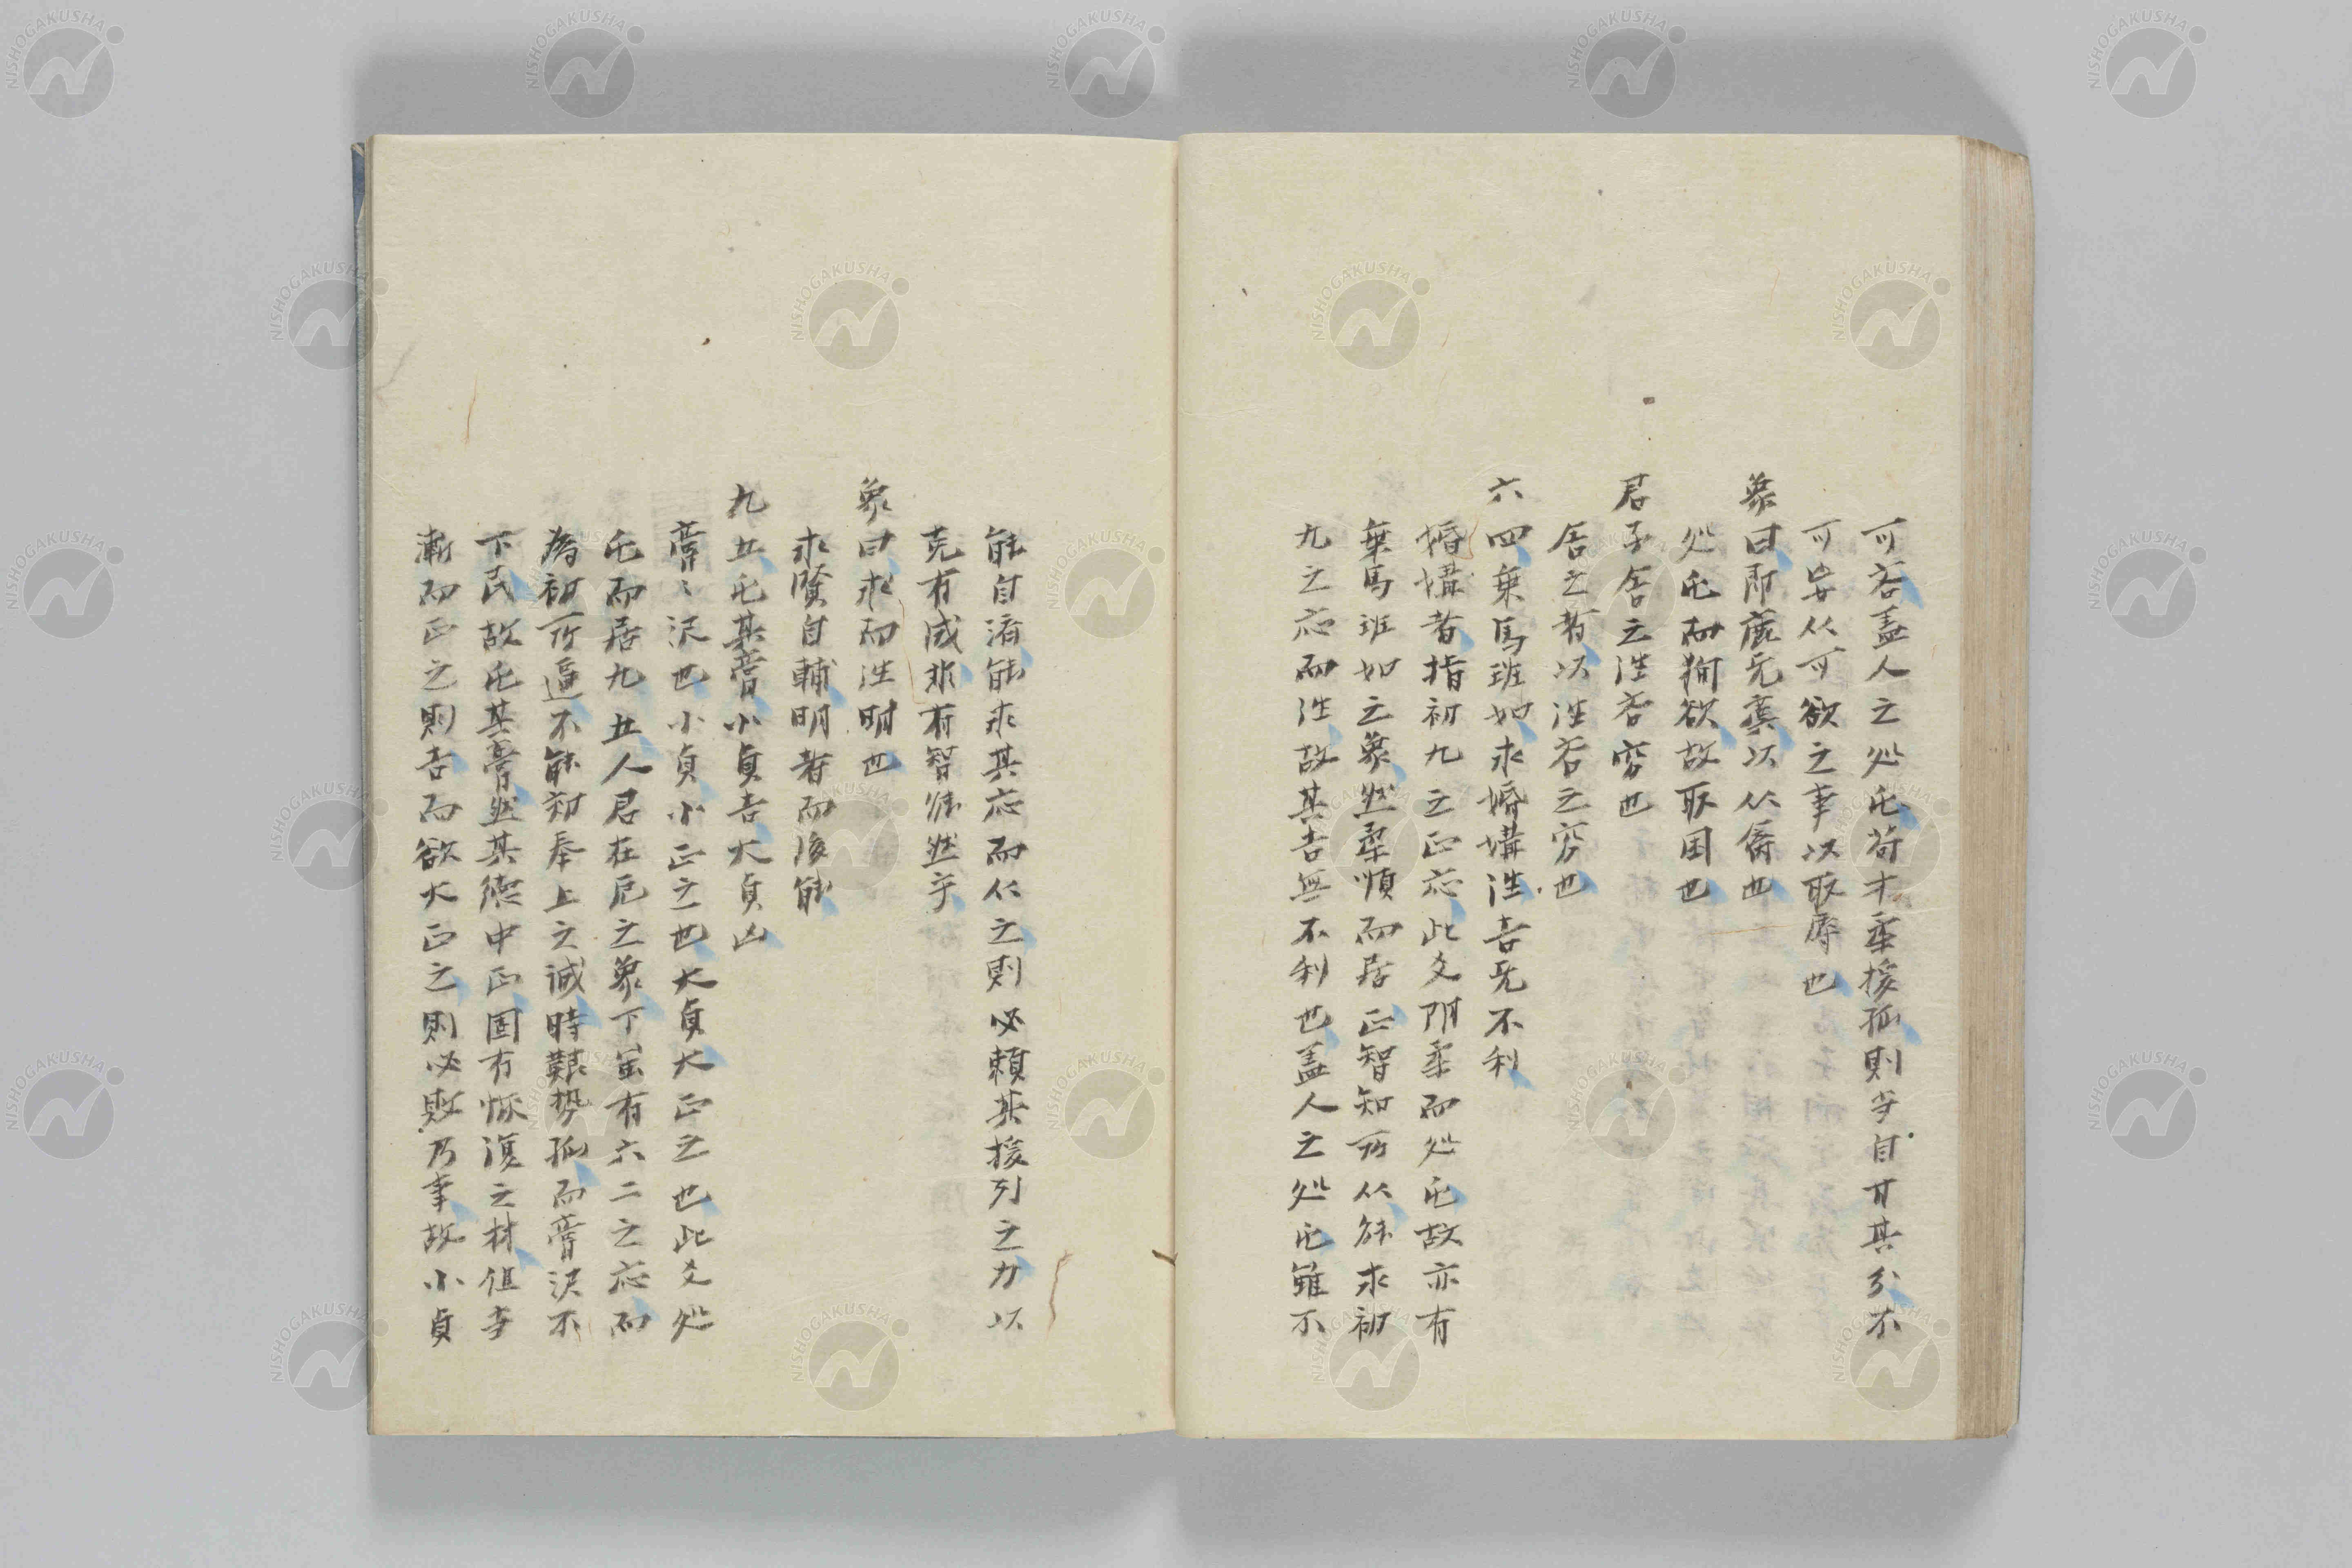 可吝盖人之処屯苟才柔援孤則当自甘其分不
可妄従可欲之事以取辱也
象曰即鹿无虞以从禽也
処屯而徇欲故取困也
君子舎之往吝窮也
舎之者以往吝之窮也
六四乗馬班如求婚媾往吉无不利
婚媾者指初九之正応此爻陰柔而処屯故亦有
乗馬班如之象然柔順而居正智知所从能求初
九之応而往故其吉無不利也盖人之処屯雖不
能自済能求其応而从之則必頼其援引之力以
克有成非有智能然乎
象曰求而往明也
求賢自輔明者而後能
九五屯其膏小貞吉大貞凶
膏〻沢也小貞小正之也大貞大正之也此爻処
屯而居九五人君在屯之象下虽有六二之応而
為初所逼不能効奉上之誠時艱勢孤而膏沢不
下民故屯其膏然其徳中正固有恢復之材但当
漸而正之則吉而欲大正之則必敗乃事故小貞
NISHOGAKUSHA